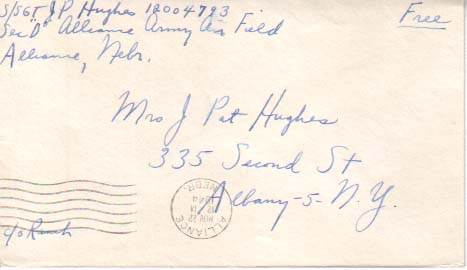 S/SGT J P Hughes 12004793
Sec "D" Alliance Army Air Field
Alliance, Nebr.
Free
Mrs J Pat Hughes
335 Second St
Albany-5-N.Y.
ALLIANCE
NOV 22
1944
NEBR.
c/o